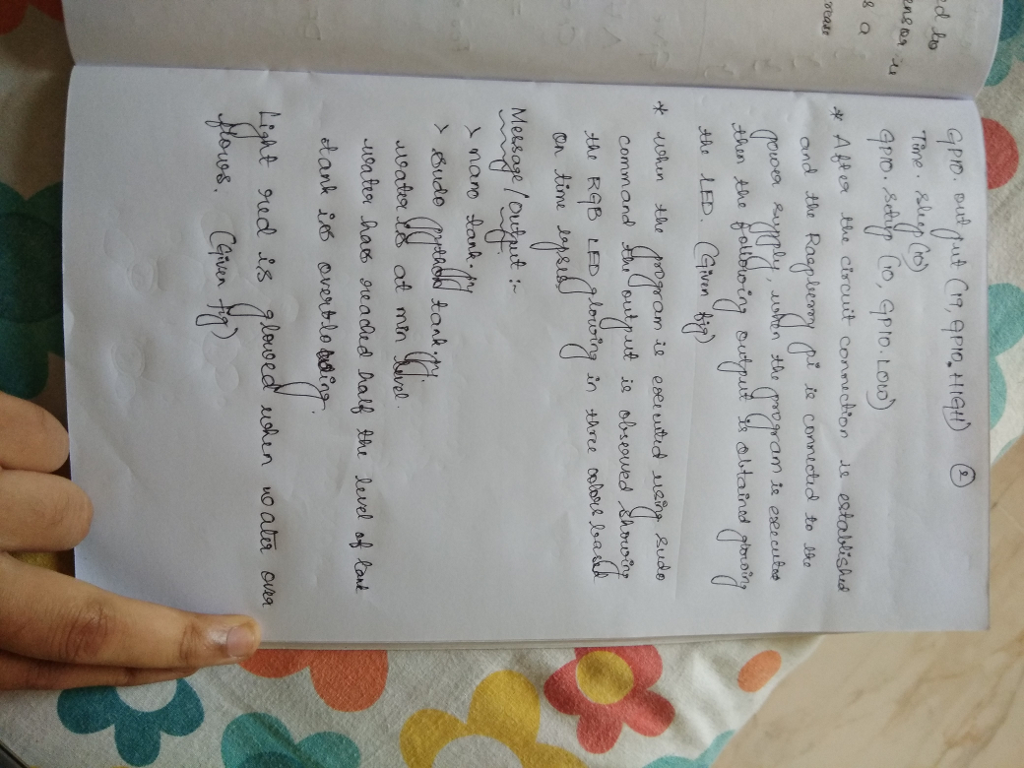 ed to
ensor is
s a
GPIO. output (19, GPIO. HIGH) 2
Time. sleep (10)
GPIO. setup (10, GPIO. LOW)
* After the circuit connection is established
and the Raspberry pi is connected to the
power supply, when the program is executed
then the following output is obtaind glowing
the LED. (Given fig)
* when the program is executed using sudo
command the output is obseved showing
the RGB LED glowing in three colors based
on time lapsed
Message/output :-
> nano tank.py
> sudo python tank.py.
water is at min level.
water has reached half the level of tank
tank is overbloing.
Light red is glowed when water over
flows. (Given fig)